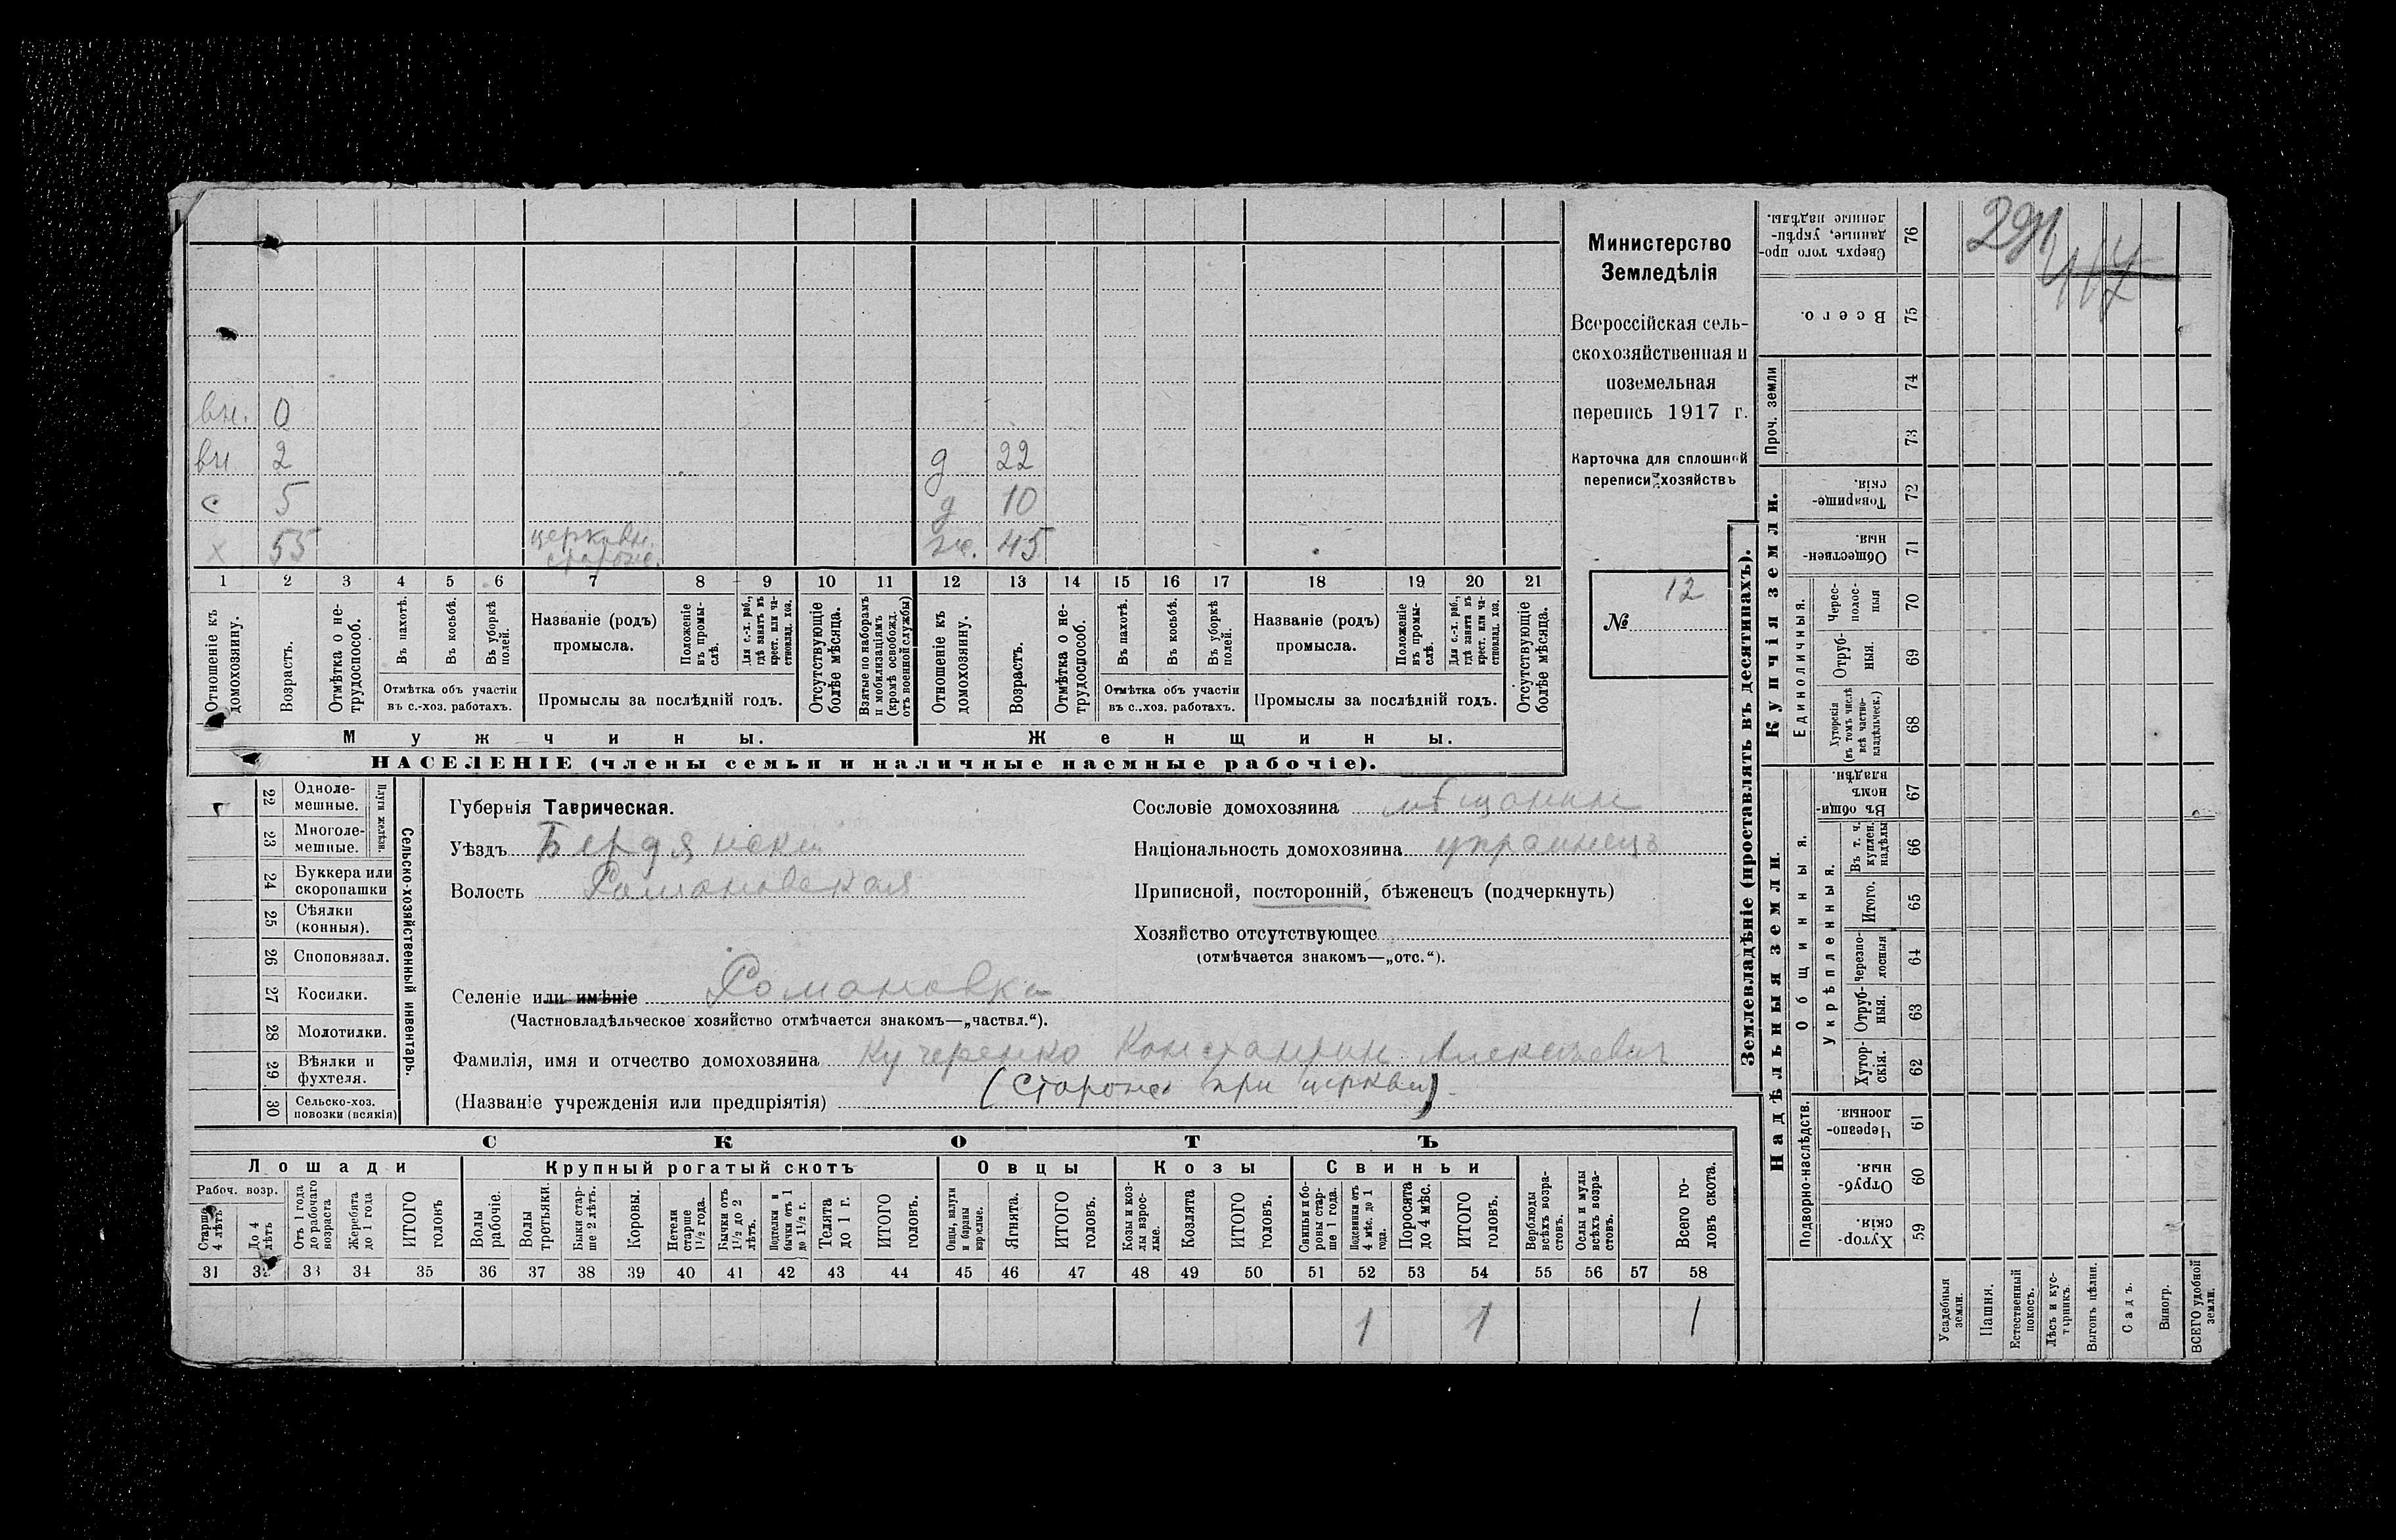 вн. 0
вн 2 д 22
с 5 д 10
х 55 церковн. сторож. ж. 45
1 2 3 4 5 6 7 8 9 10 11 12 13 14 15 16 17 18 19 20 21
Отношеніе къ домохозяину.
Возрастъ.
Отмѣтка о не-трудоспособ.
Въ пахотѣ.
Въ косьбѣ.
Въ уборкѣ полей.
Отмѣтка объ участіи
въ с.-хоз. работахъ.
Названіе (родъ)
промысла.
Положеніе въ промы-слѣ.
Для с.-х. раб., гдѣ занятъ въ крест. или ча-стновлад. хоз.
Промыслы за послѣдній годъ.
Отсутствующіе болѣе мѣсяца.
Взятые по наборамъ и мобилизаціямъ (кромѣ освобожд. отъ военной службы)
Отношеніе къ домохозяину.
Возрастъ.
Отмѣтка о не-трудоспособ.
Въ пахотѣ.
Въ косьбѣ.
Въ уборкѣ полей.
Отмѣтка объ участіи
въ с..хоз. работахъ.
Названіе (родъ)
промысла.
Положеніе въ промы-слѣ.
Для с.-х. раб., гдѣ занята въ крест. или ча-стновлад. хоз.
Промыслы за послѣдній годъ.
Отсутствующіе болѣе мѣсяца.
Мужчины. Женщины.
НАСЕЛЕНІЕ (члены семьи и наличные наемные рабочіе).
Министерство
Земледѣлія
Всероссійская сель-
скохозяйственная и
поземельная
перепись 1917 г.
Карточка для сплошной
переписи хозяйствъ
№ 12
22 Одноле-мешные.
23 Многоле-мешные.
Плуги желѣзн.
24 Буккера или скоропашки
25 Сѣялки (конныя).
26 Сноповязал.
27 Косилки.
28 Молотилки.
29 Вѣялки и фухтеля.
30 Сельско-хоз. повозки (всякія)
Сельско-хозяйственный инвентарь.
Губернія Таврическая.
Уѣздъ Бердянски
Волость Романовская
Сословіе домохозяина мѣщанин
Національность домохозяина украинецъ
Приписной, посторонній, бѣженецъ (подчеркнуть)
Хозяйство отсутствующее
(отмѣчается знакомъ—„отс.“).
Селеніе или имѣніе Романовка
(Частновладѣльческое хозяйство отмѣчается знакомъ—„частвл.“).
Фамилія, имя и отчество домохозяина Кучеренко Константин Алексѣевич
(Названіе учрежденія или предпріятія) (Сторож при церкви)
СКОТЪ
Лошади Крупный рогатый скотъ Овцы Козы Свиньи
Рабоч. возр.
Старше 4 лѣтъ
До 4 лѣтъ
Отъ 1 года до рабочаго возраста
Жеребята до 1 года
ИТОГО головъ
Волы рабочіе.
Волы третьяки.
Быки стар-ше 2 лѣтъ.
Коровы.
Нетели старше 1 1/2 года.
Бычки отъ 1 1/2 до 2 лѣтъ.
Подтелки и бычки отъ 1 до 1 1/2 г.
Телята до 1 г.
ИТОГО головъ.
Овцы, валухи и бараны взрослые.
Ягнята.
ИТОГО головъ.
Козы и коз-лы взрос-лые.
Козлята
ИТОГО головъ.
Свиньи и бо-ровы стар-ше 1 года.
Подсвинки отъ 4 мѣс. до 1 года.
Поросята до 4 мѣс.
ИТОГО головъ.
Верблюды всѣхъ возра-стовъ.
Ослы и мулы всѣхъ возра-стовъ.
Всего го-ловъ скота.
31 32 33 34 35 36 37 38 39 40 41 42 43 44 45 46 47 48 49 50 51 52 53 54 55 56 57 58
1 1 1
Землевладѣніе (проставлять въ десятинахъ).
Сверхъ того про-данные, укрѣп-ленные надѣлы. 76
Всего. 75
Проч. земли 74
73
Купчія земли.
Товарище-скія. 72
Обществен-ныя. 71
Единоличныя.
Черес-полос-ныя 70
Отруб-ныя. 69
Хуторскія (въ томъ числѣ всѣ частно-владѣльческ.) 68
Надѣльныя земли.
Общинныя.
Въ общи-номъ владѣн. 67
Укрѣпленныя.
Въ т. ч. куплен. надѣлы 66
Итого. 65
Черезпо-лосныя 64
Отруб-ныя. 63
Хутор-скія. 62
Подворно-наслѣдств.
Черезпо-лосныя. 61
Отруб-ныя. 60
Хутор-скія. 59
Усадебныя земли.
Пашня.
Естественный покосъ.
Лѣсъ и кус-тарникъ.
Выгонъ цѣлин.
Садъ.
Виногр.
ВСЕГО удобной земли.